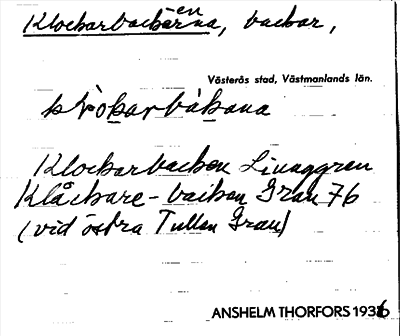 -en
Klockarbackarna, backar,
Västerås stad, Västmanlands län.
Klockarbacken Linaggren
Klåckare-backen Gran 76
(vid östra Tullen Grau)
ANSHELM THORFORS 1936